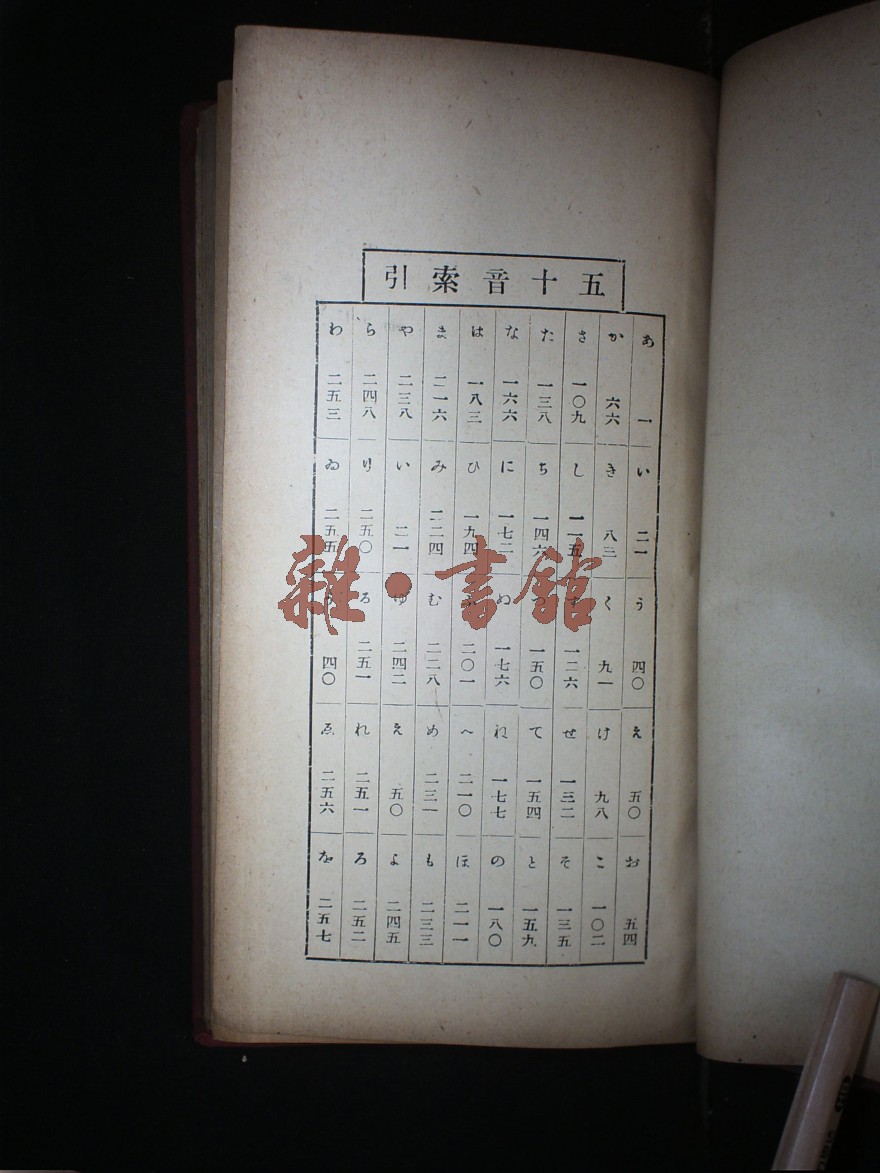 五十音索引
あ 一 い 二一 う 四〇 え 五〇 お 五四
か 六六 き 八三 く 九一 け 九八 こ 一〇二
さ 一〇九 し 一一五 す 一二六 せ 一三二 そ 一三五
た 一三八 ち 一四六 一五〇 て 一五四 と 一五九
な 一六六 に 一七二 ぬ 一七六 ね 一七七 の 一八〇
は 一八三 ひ 一九四 ふ 二〇一 へ 二一〇 ほ 二一一
ま 二一六 み 二二四 む 二二八 め 二三一 も 二三三
や 二三八 い 二一 ゆ 二四二 え 五〇 よ 二四五
ら 二四八 り 二五〇 る 二五一 れ 二五一 ろ 二五二
わ 二五三 ゐ 二五五 う 四〇 ゑ 二五六 を 二五七
雜·書館